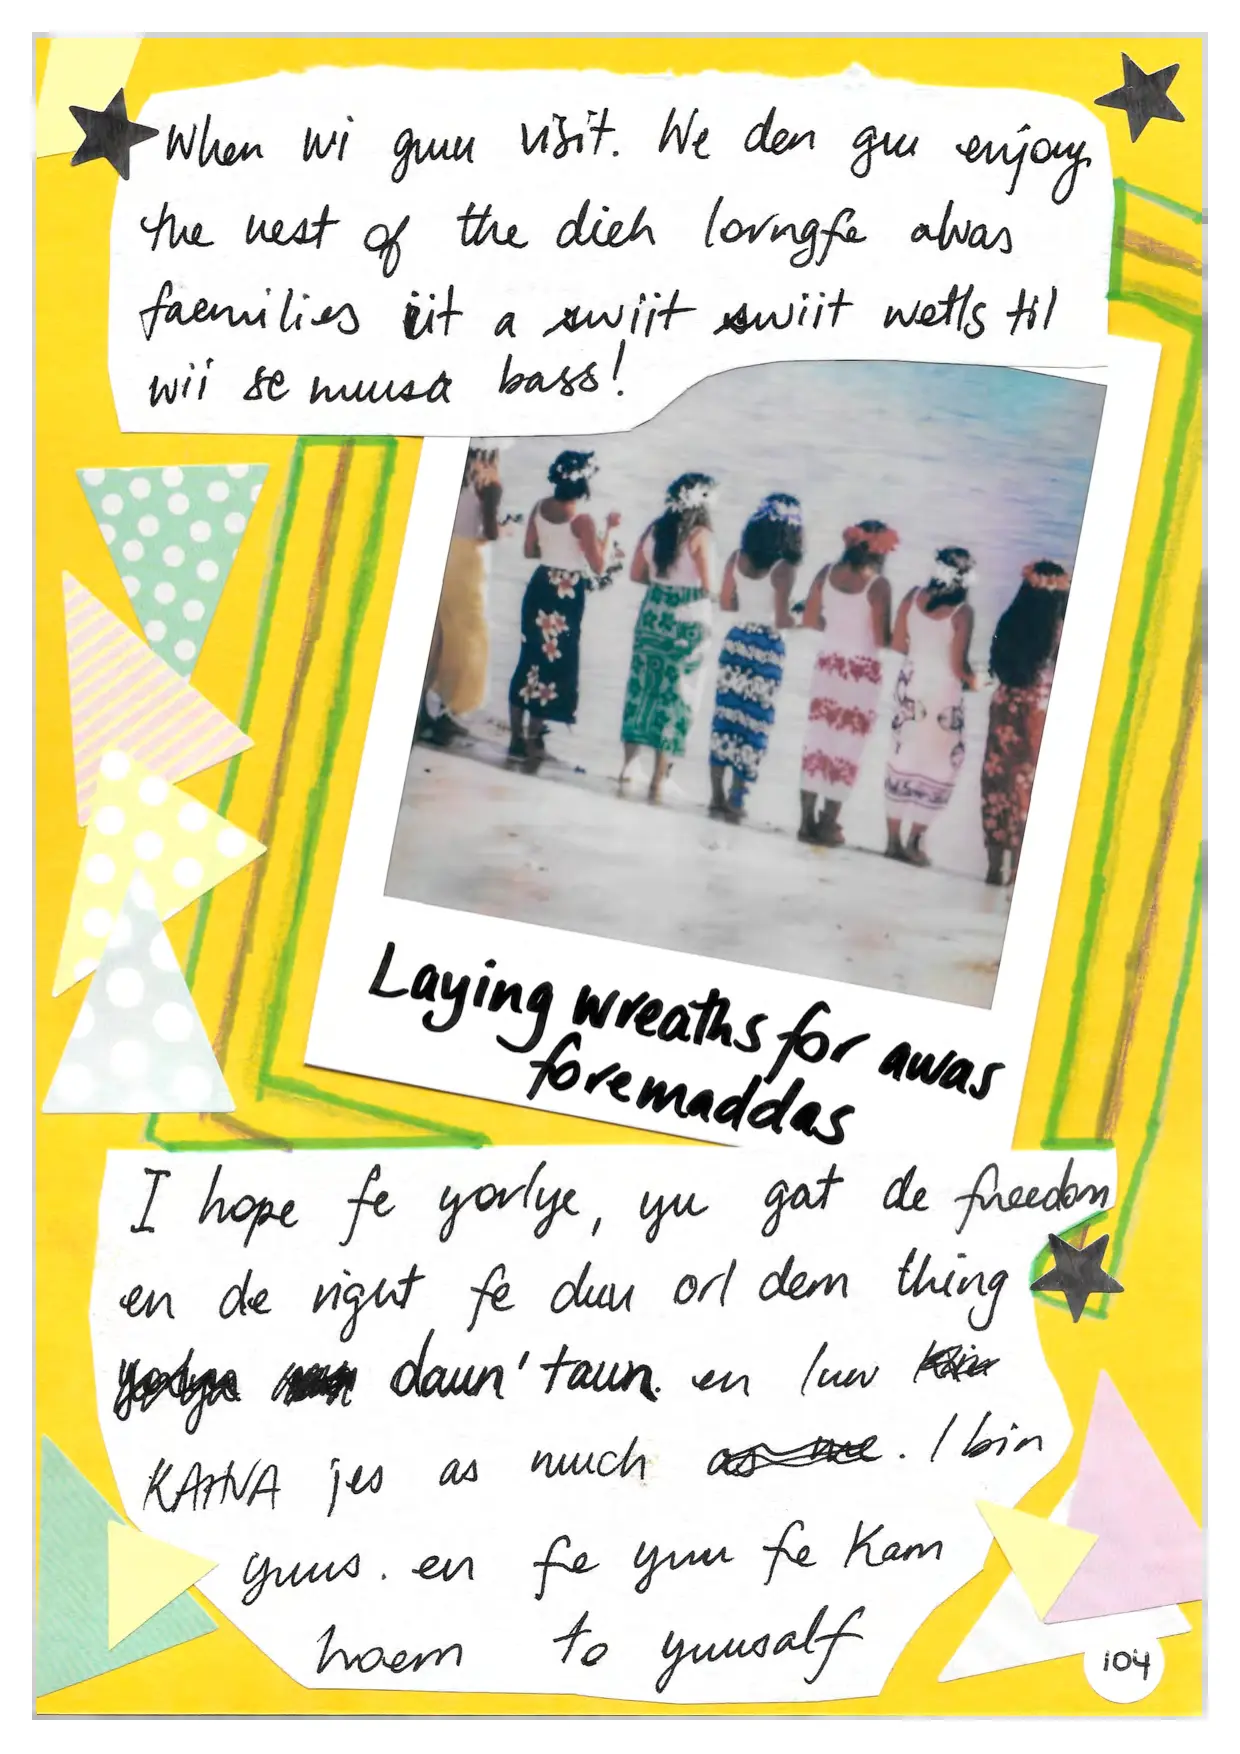 When wi guu visit. We den guu enjoy
the rest of the dieh lorngfe awas
faemilies iit a swiit swiit wetls til
wii se muusa bass!
Laying wreaths for awas
foremaddas
I hope fe yorlye, yu gat de freedom
en de right fe duu orl dem thing
daun' taun. en luw
KAHVA jes as much as me. I bin
yuus. en fe yuu fe kam
hoem to yuusalf
104